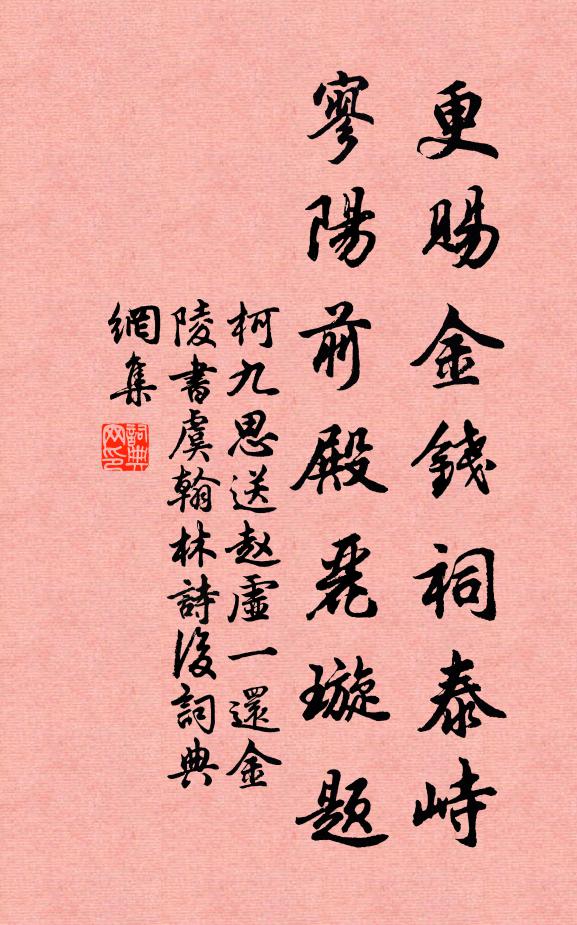 更賜金錢祠泰峙
寥陽前殿麗璇題
柯九思送赵虛一還金
陵書虞翰林詩後詞典
網集
詞典網印